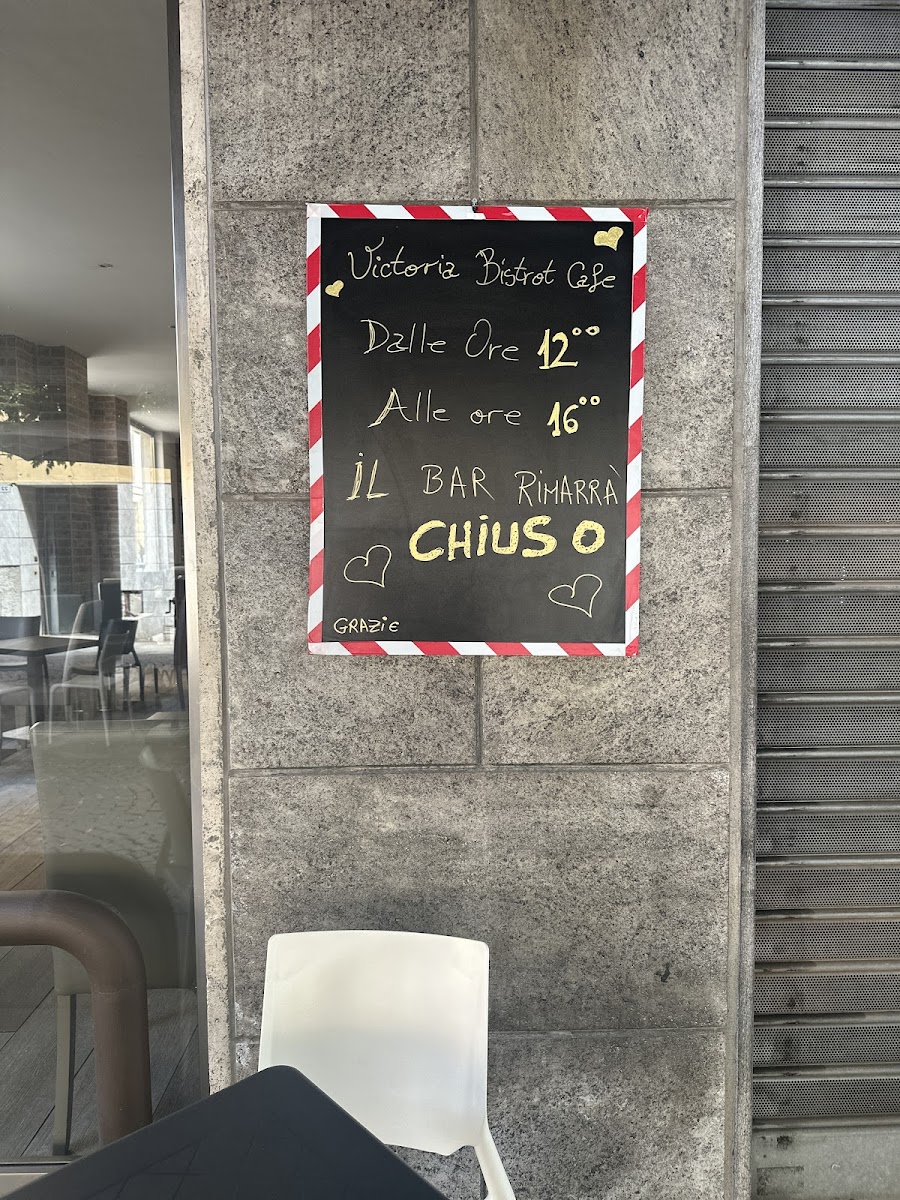 Victoria Bistrot Cafe
Dalle Ore 12°°
Alle ore 16°°
iL BAR RiMARRÀ
CHiUSO
GRAZiE